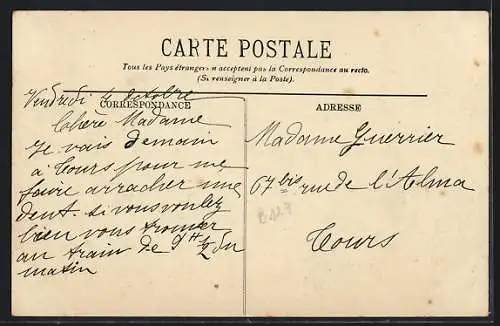 CARTE POSTALE
Tous les Pays étrangers n'acceptent pas la Correspondance au recto.
(Se renseigner à la Poste).
Vendredi 4 octobre
CORRESPONDANCE
Chère Madame
Je vais demain
a Tours pour me
faire arracher une
dent. si vous voulez
bien vous trouver
au train de 9 H 1/2 du
matin
ADRESSE
Madame Guerrier
67 bis rue de l'Alma
Tours